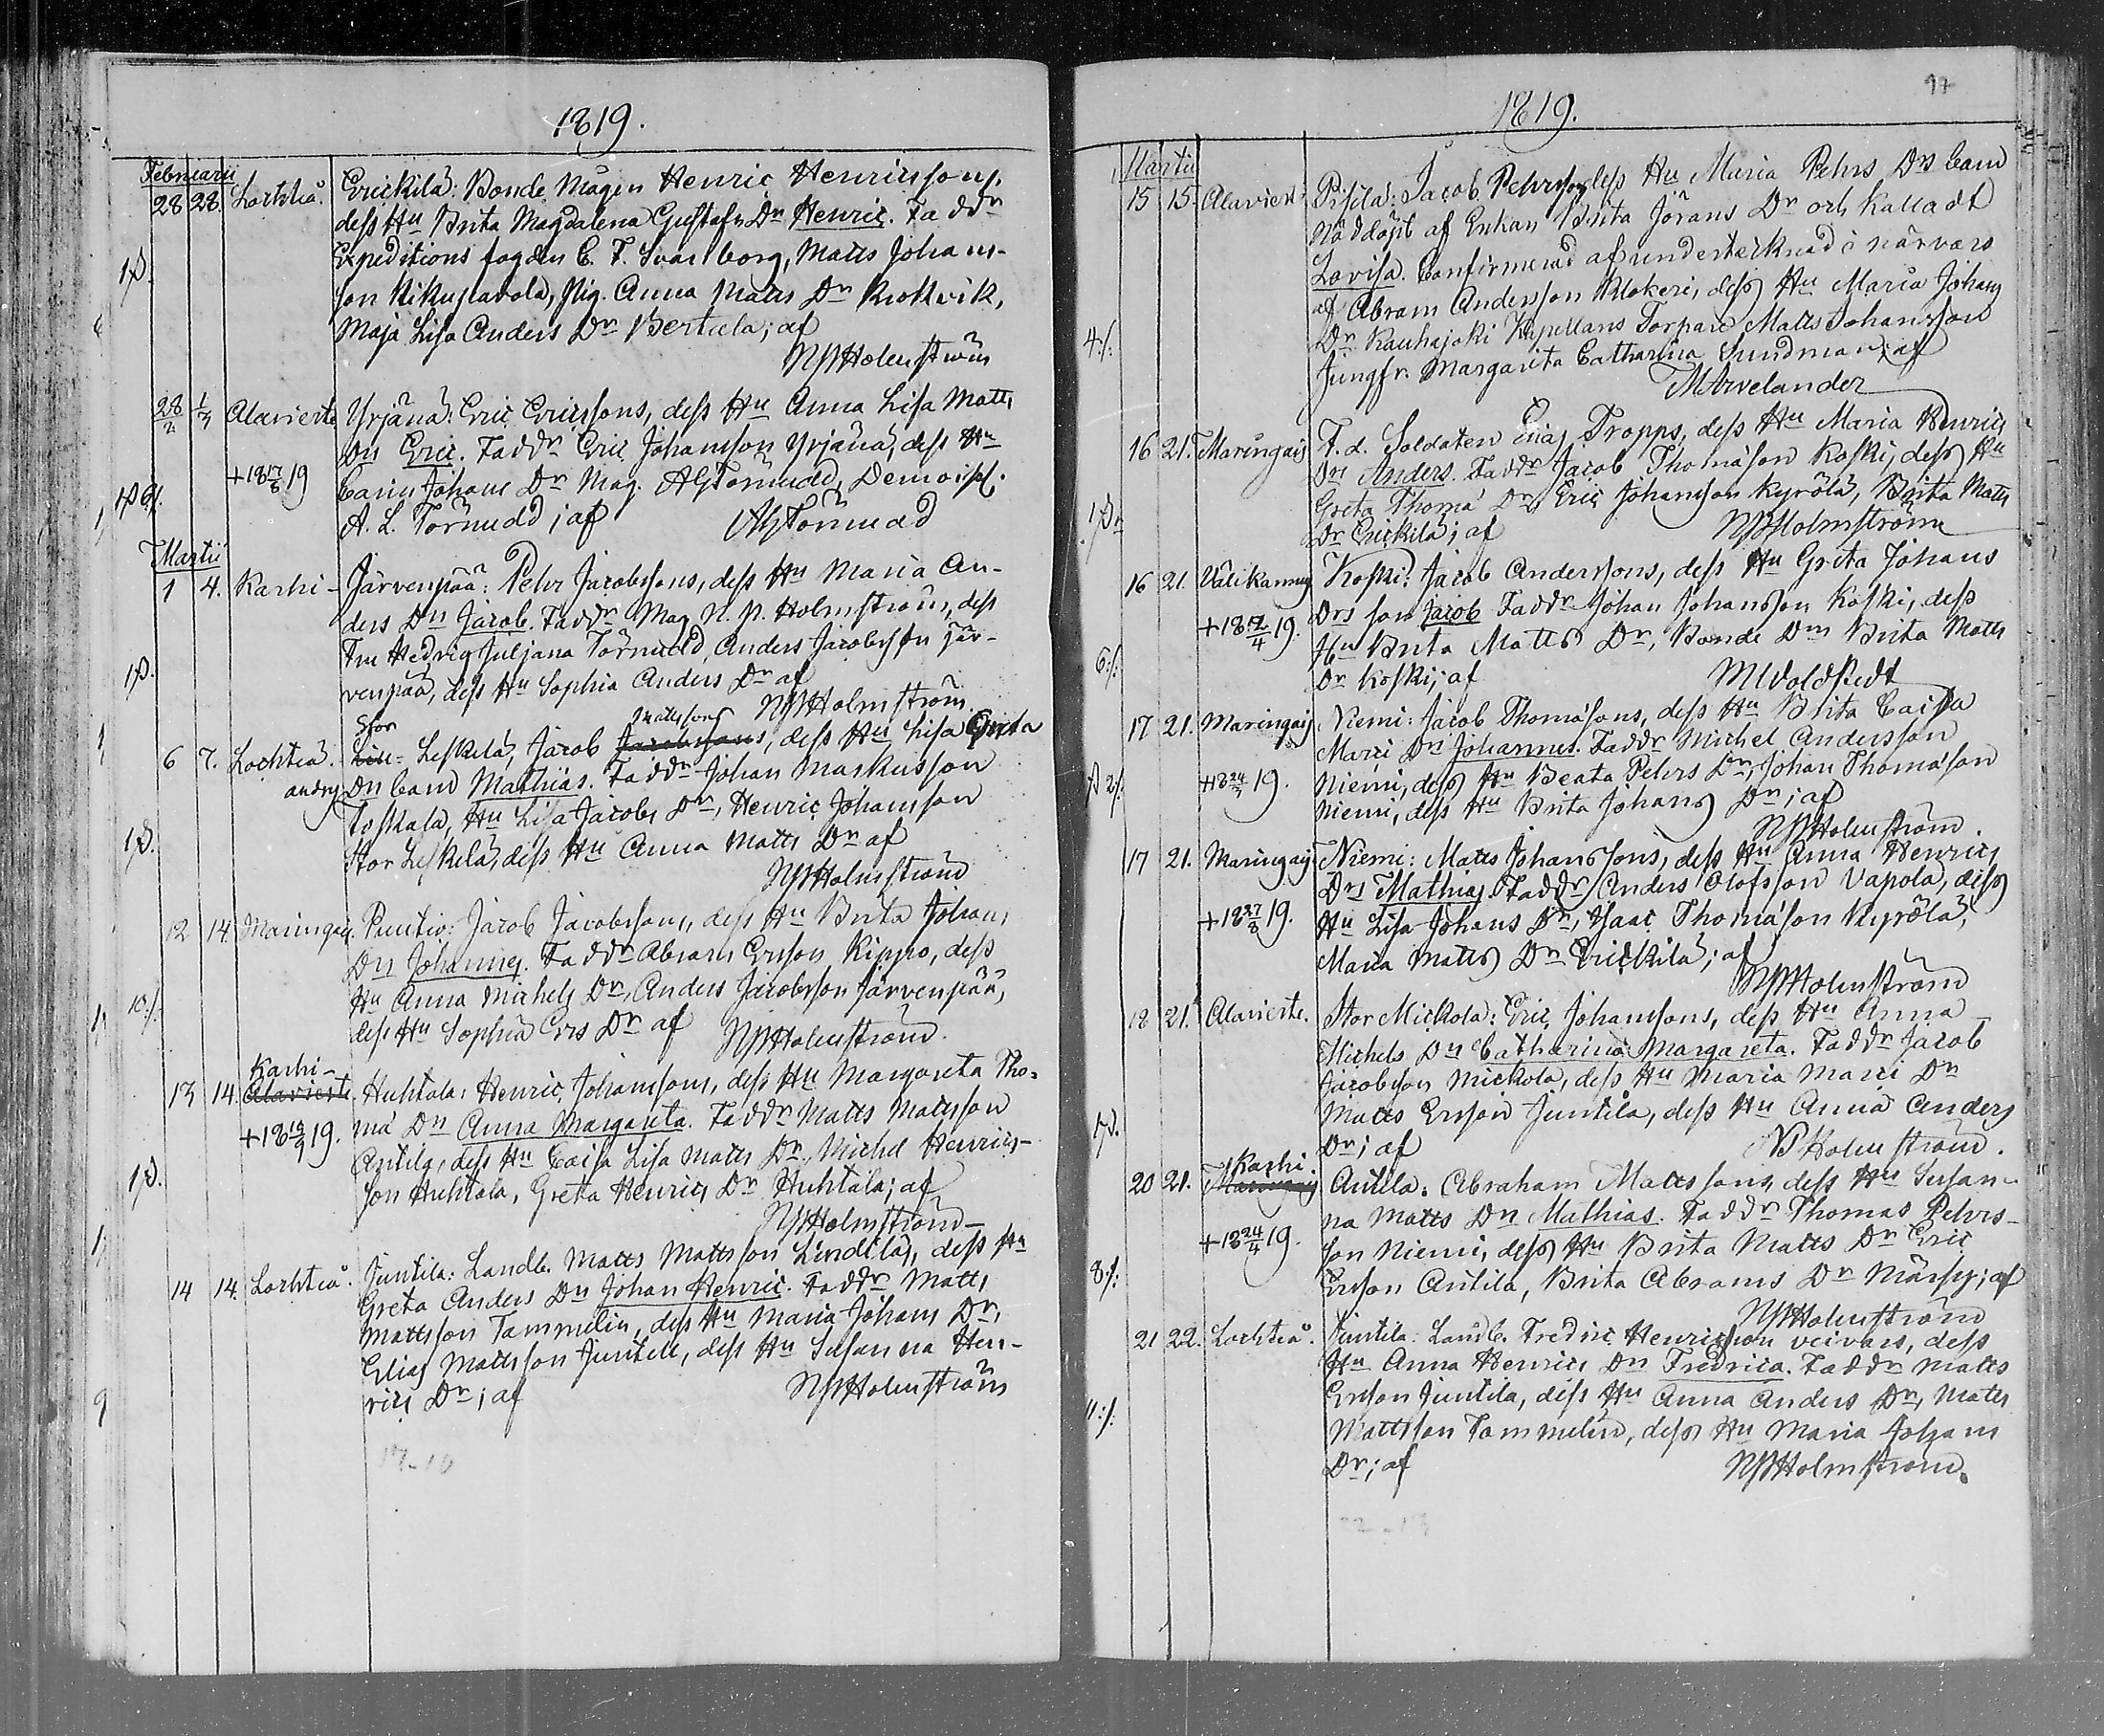 1819.
Februarii
28 28. Lochteå. Erickilä: Bonde Mågen Henric Henricssons,
dess Hu Brita Magdalena Gustafs Dr Henric. Faddr
Expeditions fogden C. F. Svanborg, Matts Johans-
1 P. son Kikuslavola, Pig. Anna Matts Dr
Maja Lisa Anders Dr Bertula; af
NPHolmström
28/2 1/3 Alavierte Yrjänä: Eric Ericssons, dess Hu Anna Lisa Matts
Drs Eric. Faddr Eric Johansson Yrjänä, dess Hu
+18 17/8 19 Carin Johans Dr Mag. AGTörnudd, Demoisel.
A. L. Törnudd; af AGTörnudd
Martii
1 4. Karhi- Järvenpää: Pehr Jacobssons, dess Hu Maria An-
ders Drs Jacob. Faddr Mag N. P. Holmström, dess
Fru Hedvig Juljana Törnudd, Anders Jacobsson Jär-
1 P. venpää, dess Hu Sophia Anders Dr af
NPHolmström.
Stor Mattssons
6 7. Lochteå. Lill- Leskelä, Jacob Jacobssons, dess Hu Lisa Greta
andrs Drs barn Mathias. Faddr Johan Markusson
Toskala, Hu Lisa Jacobs Dr, Henric Johansson
1 P. Stor Leskelä, dess Hu Anna Matts Dr af
NPHolmström
12 14. Maringais. Puutio: Jacob Jacobssons, dess Hu Brita Johans
Drs Johannes. Faddr Abram Ersson Kippo, dess
Hu Anna Michels Dr, Anders Jacobsson Järvenpää,
10:/. dess Hu Sophia Ers Dr af NPHolmström.
Karhi-
13 14. Alavierte. Huhtala: Henric Johanssons, dess Hu Margareta Tho-
+18 19/9 19. mä Drs Anna Margareta. Faddr Matts Mattsson
Antila, dess Hu Caisa Lisa Matts Dr, Michel Henrics-
1 P. son Huhtala, Greta Henrics Dr Huhtala; af
NPHolmström
14 14. Lochteå. Juntila: Landb. Matts Mattsson Lindila, dess Hu
Greta Anders Drs Johan Henric. Faddr Matts
Mattsson Tammelin, dess Hu Maria Johans Dr,
Elias Mattsson Juntell, dess Hu Susanna Hen-
rics Dr; af NPHolmström
17-10
97
1819.
Martii
15 15. Alavierte Jacob Pehrssons dess Hu Maria Pehrs Drs barn
Nöddöpt af Enkan Brita Jörans Dr och kalladt
Lovisa. Confirmerad af undertecknad i närvaro
af Abram Andersson Klokeri, dess Hu Maria Johans
4:/. Dr. Kauhajoki Kapellans Torpare Matts Johansson
Jungfr. Margarita Catharina Sundman; af
MArvelander
16 21. Maringais F. d. Soldaten Tropps, dess Hu Maria Henrics
Drs Anders. Faddr Jacob Thomasson Koski, dess Hu
Greta Thoma Dr, Eric Johansson Kyrölä, Brita Matts
Dr Erickilä; af NPHolmström
16 21. Välikannus Koski: Jacob Anderssons, dess Hu Greta Johans
+18 12/4 19. Drs son Jacob Faddr Johan Johansson Koski, dess
Hu Brita Matts Dr, Bonde Drn Brita Matts
6:/. Dr Koski; af MWoldstedt
17 21. Maringais Niemi: Jacob Thomäsons, dess Hu Brita Caisa
Marci Drs Johannes. Faddr Michel Andersson
+18 24/7 19. Niemi, dess Hu Beata Pehrs Dr, Johan Thomasson
Niemi, dess Hu Brita Johans Dr; af
NPHolmström.
17 21. Maringais Niemi: Matts Johanssons, dess Hu Anna Henrics
Drs Mathias. Faddr Anders Olofsson Vapola, dess
+18 27/8 19. Hu Lisa Johans Dr, Isaac Thomasson Kyrölä,
Maria Matts Dr Erickilä; af
NPHolmström
18 21. Alavierte. Stor Mickola: Eric Johanssons, dess Hu Anna
Michels Drs Catharina Margareta. Faddr Jacob
Jacobsson Mickola, dess Hu Maria Marci Dr
Matts Ersson Juntila, dess Hu Anna Anders
1 P. Dr; af NPHolmström.
Karhi.
20 21. Maringais Antila. Abraham Mattssons dess Hu Susan-
na Matts Drs Mathias. Faddr Thomas Pehrs-
+18 24/4 19. son Niemi, dess Hu Brita Matts Dr Eric
8:/. Ersson Antila, Brita Abrams Dr Märsy; af
NPHolmström
21 22. Lochteå. Juntila: Landb. Fredric Henricsson Veivars, dess
Hu Anna Henrics Drs Fredrica. Faddr Matts
Ersson Juntila, dess Hu Anna Anders Dr, Matts
11:/. Mattsson Tammelin, dess Hu Maria Johans
Dr; af NPHolmström.